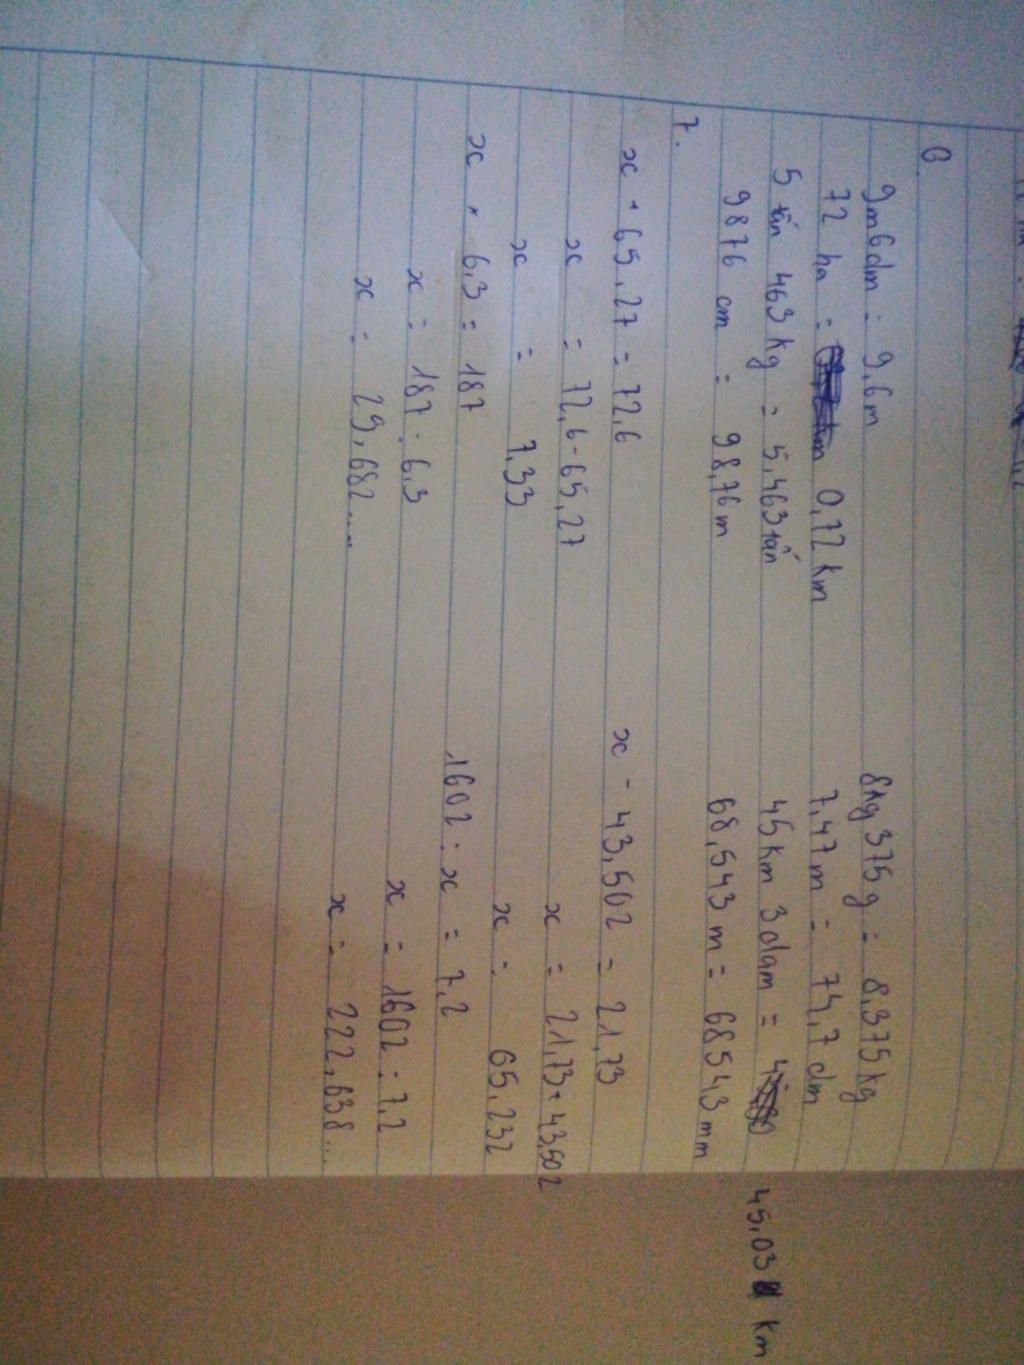 6
9m6dm = 9,6m 8kg 375g = 8,375kg
72 ha = 0,72 km 7,47m = 74,7 dm
5 tấn 463 kg = 5,463 tấn 45 km 3 dam = 45,03 km
9876 cm = 98,76 m 68,543 m = 68543 mm
7.
x + 65,27 = 72,6 x - 43,502 = 21,73
x = 72,6 - 65,27 x = 21,73 + 43,502
x = 7,33 x = 65,232
x × 6,3 = 187 1602 : x = 7,2
x = 187 : 6,3 x = 1602 : 7,2
x = 29,682.... x = 222,638...